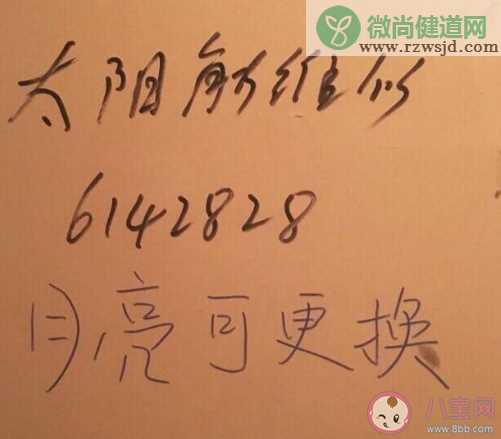 微尚健道网
www.rzwsjd.com
太阳能维修
6142828
月亮可更换
八宝网
www.8bb.com